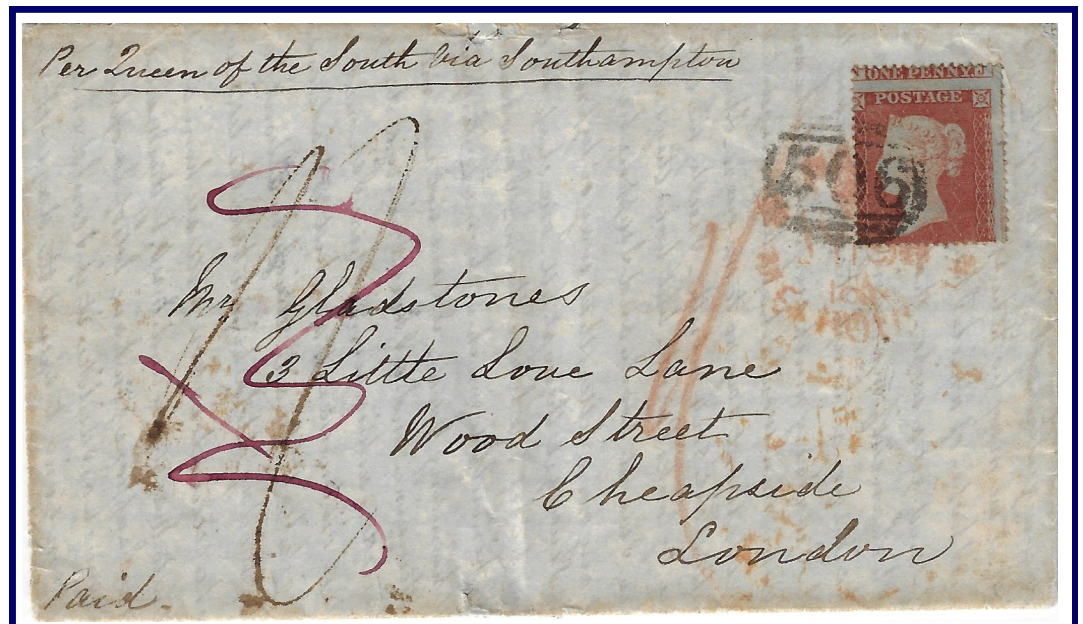 Per Queen of the South via Southampton
ONE PENNY.
POSTAGE
506
Mr Gladstones
3 Little Love Lane
Wood Street
Cheapside
London
Paid